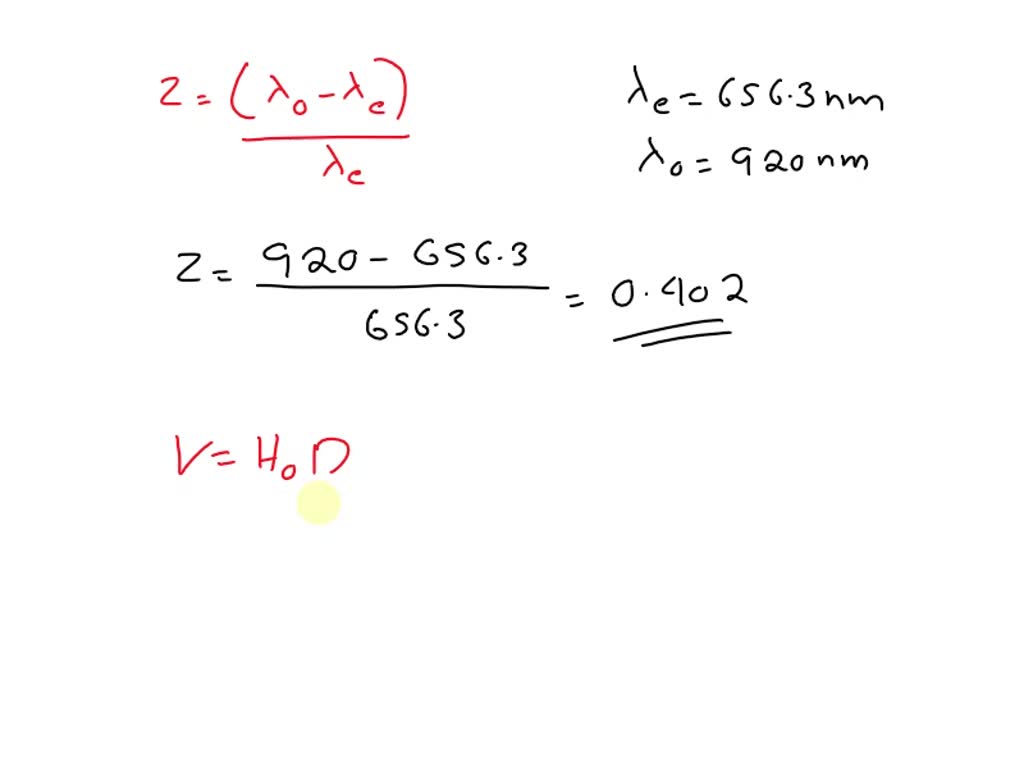 z = (λo - λe) / λe
λe = 656.3 nm
λo = 920 nm
z = 920 - 656.3 / 656.3 = 0.402
V = HoD